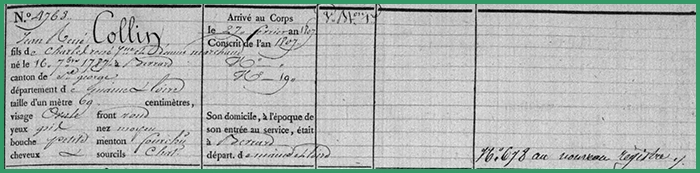 N.º 4763. Collin
Jean René
fils de Charles rené
né le 16. 7bre 1787 à Becard
canton de St georges
département de Loire
taille d'un mètre 69. centimètres,
visage Ovale front rond
yeux gris nez moyen
bouche petite menton fourchu
cheveux & sourcils Chat.
Arrivé au Corps
le 27 février an 1807
Conscrit de l'an 1807.
Son domicile, à l'époque de
son entrée au service, était
à
départ. de
Nº 678 au nouveau registre